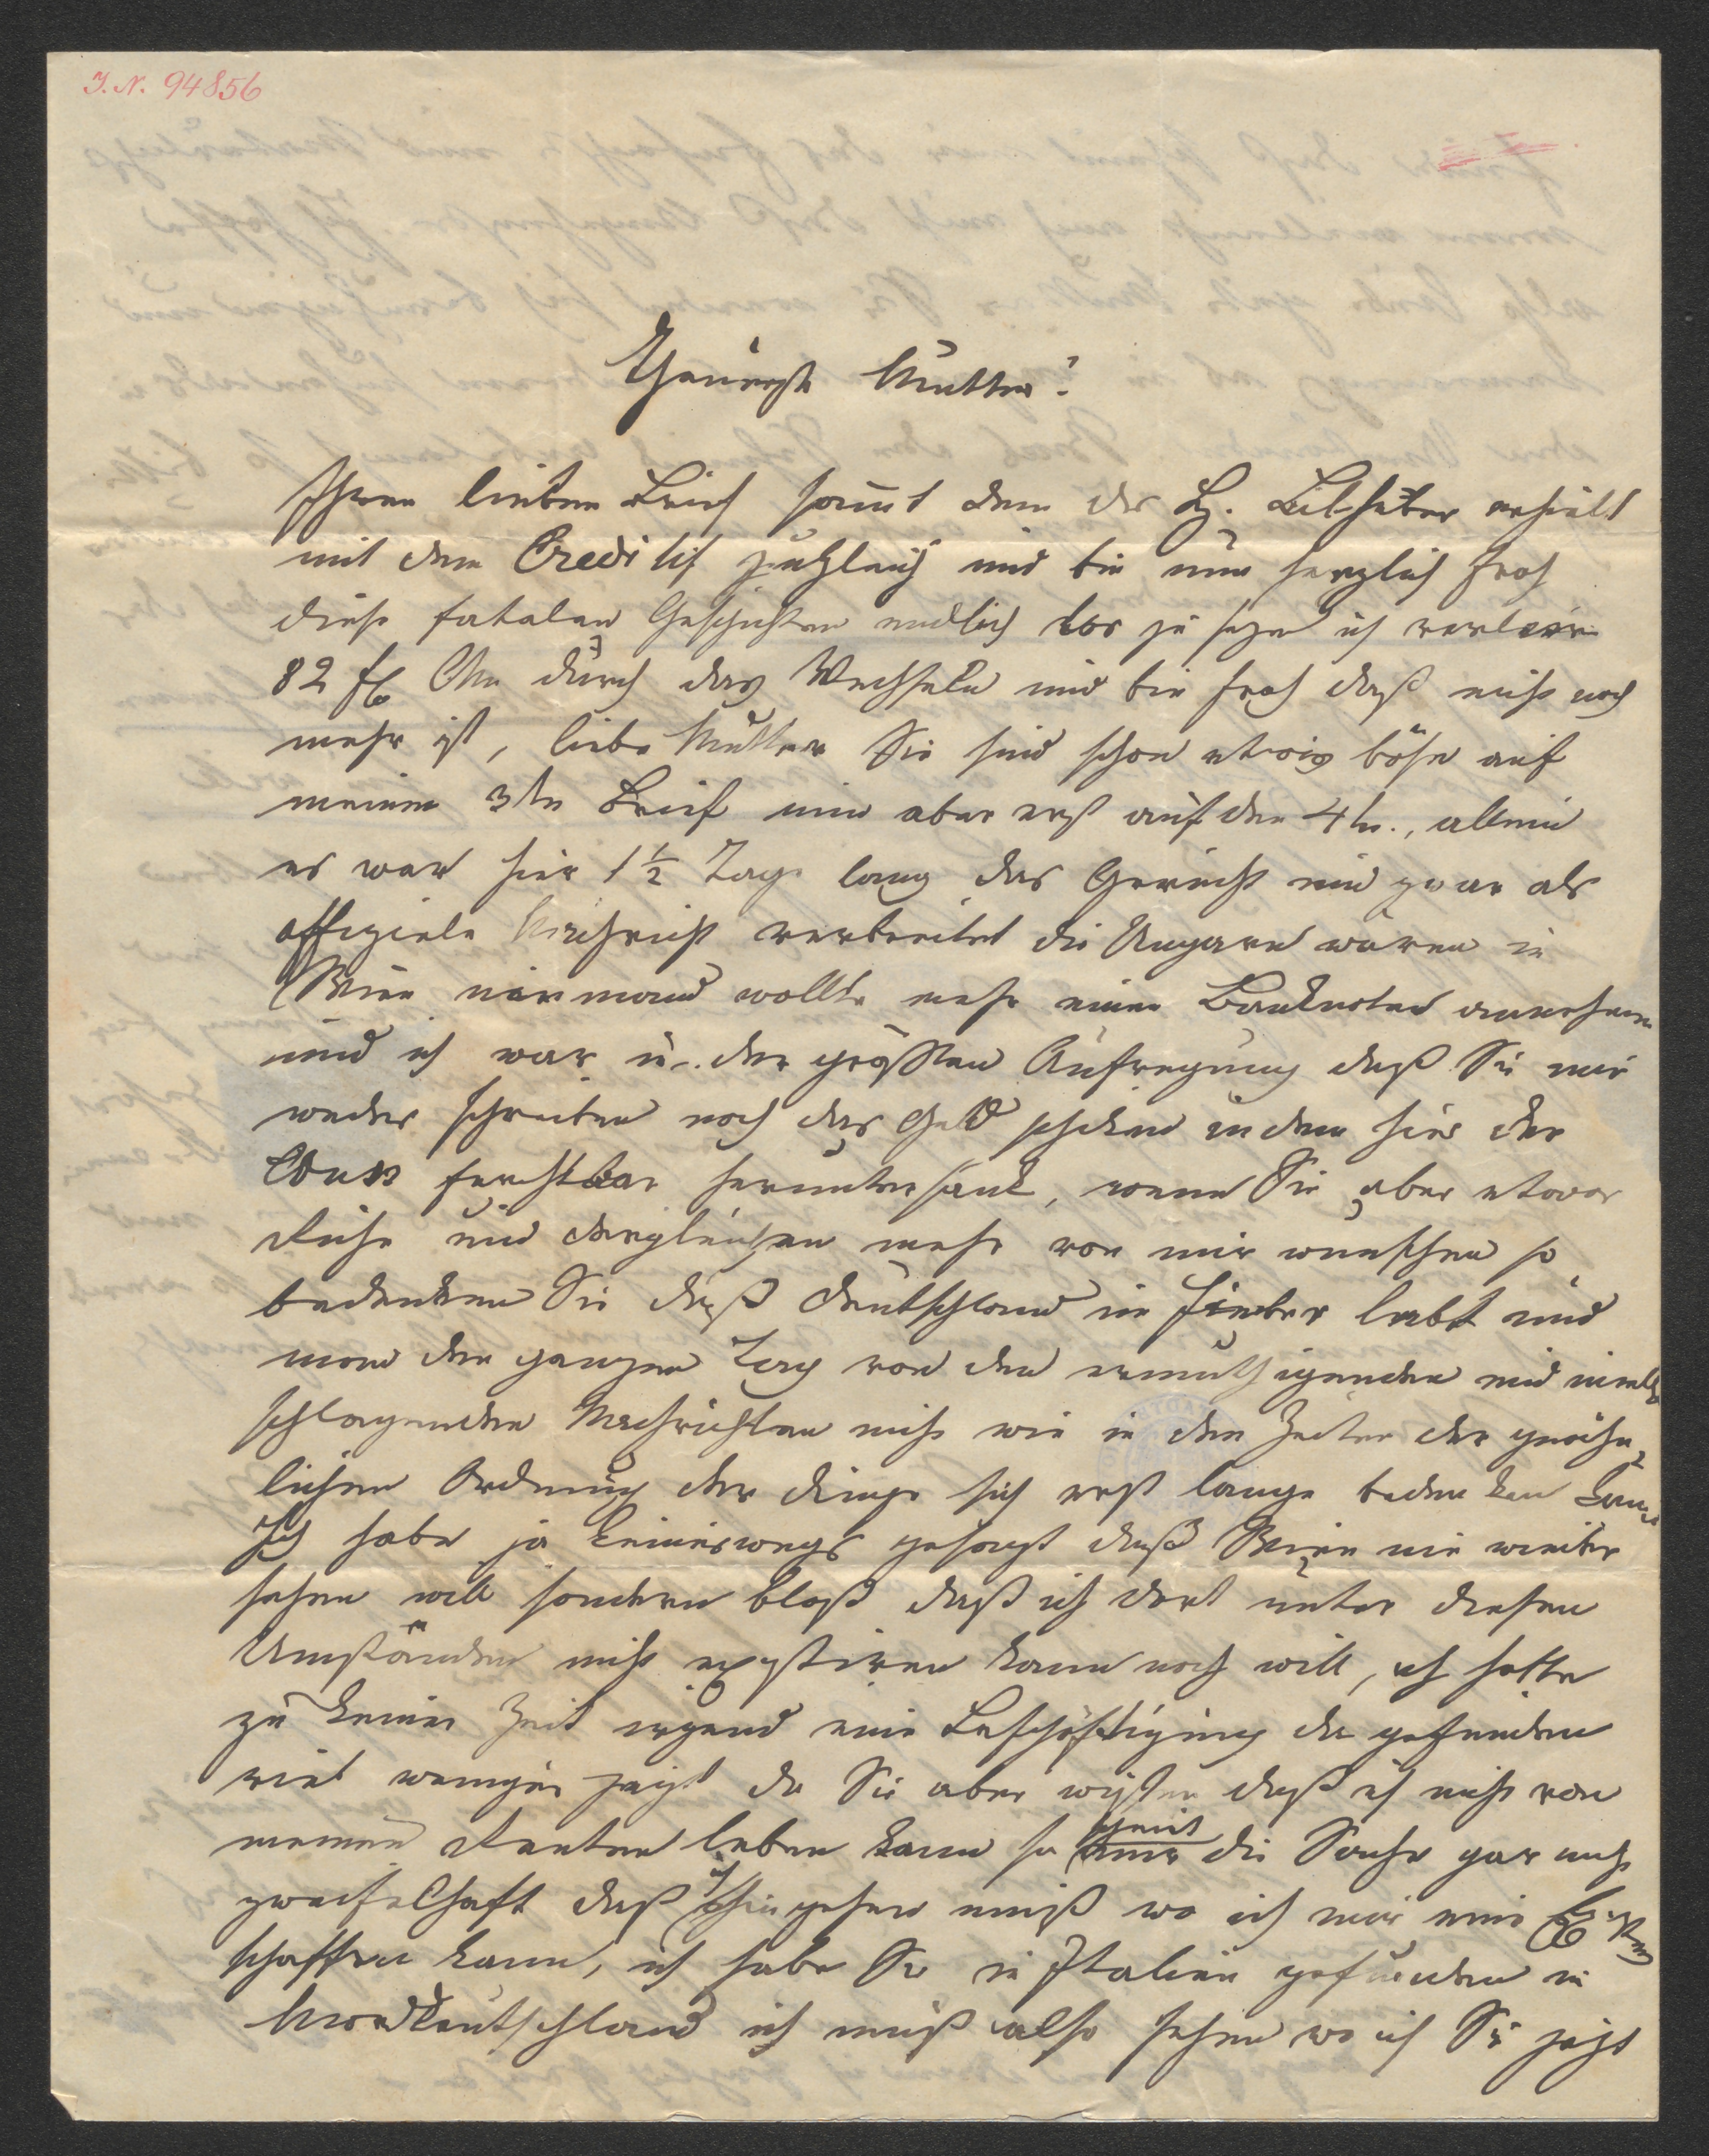 I. N. 94856
Theuerste Mutter!
Ihren lieben Brief sammt dem der H. erhielt
mit dem Creditif zugleich und bin nun herzlich froh
diese fatalen Geschichten endlich los zu seyn ich verlor
82 fl CM durch das Wechseln und bin froh daß nicht noch
mehr ist, liebe Mutter Sie sind schon etwas böse auf
meinen 3ten Brief nun aber erst auf den 4ten., allein
es war hier 1½ Tage lang das Gerücht und zwar als
offiziele Nachricht verbreitet die Ungarn wären in
Wien niemand wollte mehr einen Banknoten annehmen
und ich war in der größten Aufregung daß Sie mir
weder schreiben noch das Geld schicken indem hier der
Curs furchtbar heruntersank, wenn Sie aber etwas
Ruhe und dergleichen mehr von mir wunschen so
bedenken Sie daß Deutschland in Fieber lebt und
man den ganzen Tag von den ermuthigenden und
schlagenden Nachrichten nicht wie in den Zeiten der gewöhn
lichen Ordnung der Dinge sich erst lange bedenken kann
Ich habe ja keineswegs gesagt daß Wien nie wieder
sehen will sondern bloß daß ich dort unter diesen
Umständen nicht existiren kann noch will, ich hatte
zu keiner Zeit irgend eine Beschäftigung da gefunden
viel weniger jezt da Sie aber wissen daß ich nicht von
meinen Renten leben kann so die Sache gar nicht
zweifelhaft daß ich hingehen muß wo ich mir eine
schaffen kann, ich habe Sie in Italien gefunden in
Norddeutschland ich muß also sehen wo ich Sie jezt